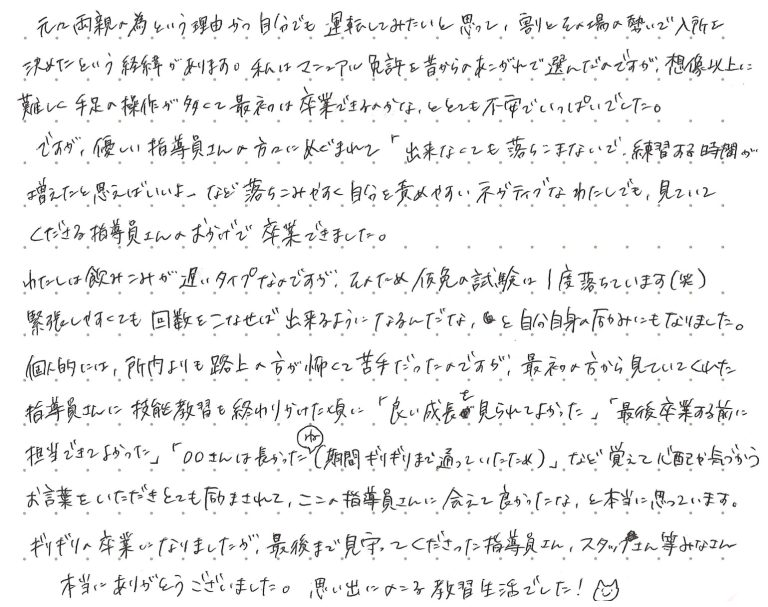 元々両親の為という理由かつ自分でも運転してみたいと思って、割とその場の勢いで入所を
決めたという経緯があります。私はマニュアル免許を昔からのあこがれで選んだのですが、想像以上に
難しく手足の操作が多くて最初は卒業できるのかな、ととても不安でいっぱいでした。
ですが、優しい指導員さんの方々にめぐまれて「出来なくても落ちこまないで、練習する時間が
増えたと思えばいいよー」など落ちこみやすく自分を責めやすいネガティブなわたしでも、見ていて
くださる指導員さんのおかげで卒業できました。
わたしは飲みこみが遅いタイプなのですが、そのため仮免の試験は1度落ちています(笑)
緊張しやすくても回数をこなせば出来るようになるんだな、と自分自身の励みにもなりました。
個人的には、所内よりも路上の方が怖くて苦手だったのですが、最初の方から見ていてくれた
指導員さんに技能教習も終わりかけた頃に「良い成長を見られてよかった」「最後卒業する前に
担当できてよかった」「〇〇さんは長かったね(期間ギリギリまで通っていたため)」など覚えて心配や気づかう
お言葉をいただきとても励まされて、ここの指導員さんに会えて良かったな、と本当に思っています。
ギリギリの卒業になりましたが、最後まで見守ってくださった指導員さん、スタッフさん等みなさん
本当にありがとうございました。思い出にのこる教習生活でした!